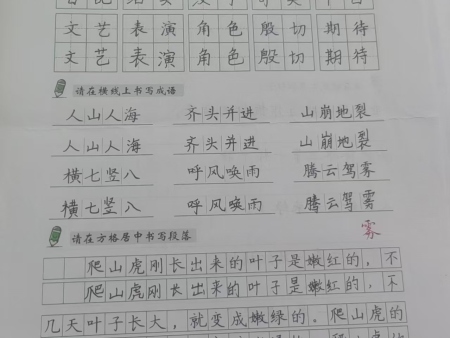 文艺 表演 角色 殷切 期待
文艺 表演 角色 殷切 期待
请在横线上书写成语
人山人海 齐头并进 山崩地裂
人山人海 齐头并进 山崩地裂
横七竖八 呼风唤雨 腾云驾雾
横七竖八 呼风唤雨 腾云驾雾
雾
请在方格居中书写段落
爬山虎刚长出来的叶子是嫩红的，不
爬山虎刚长出来的叶子是嫩红的，不
几天叶子长大，就变成嫩绿的。爬山虎的